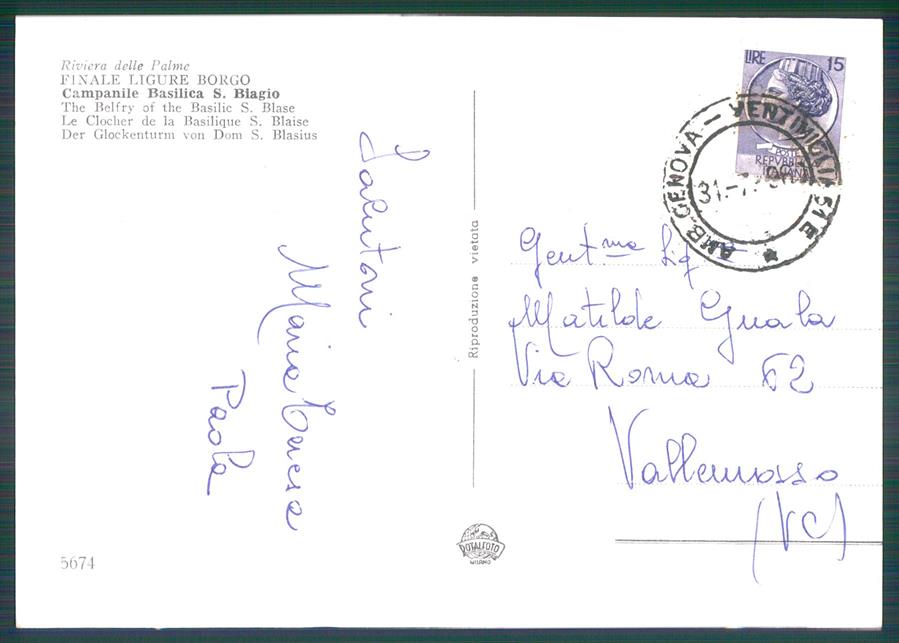 Riviera delle Palme
FINALE LIGURE BORGO
Campanile Basilica S. Biagio
The Belfry of the Basilic S. Blase
Le Clocher de la Basilique S. Blaise
Der Glockenturm von Dom S. Blasius
Salutoni
Maria Teresa
Paola
5674
Riproduzione vietata
ROTALFOTO
MILANO
LIRE 15
POSTE
REPVBBLICA
ITALIANA
AMB. GENOVA - VENTIMIGLIA 51 E
31.-7.
Gent.ma Sig
Matilde Guala
Via Roma 62
Vallemosso
(VC)